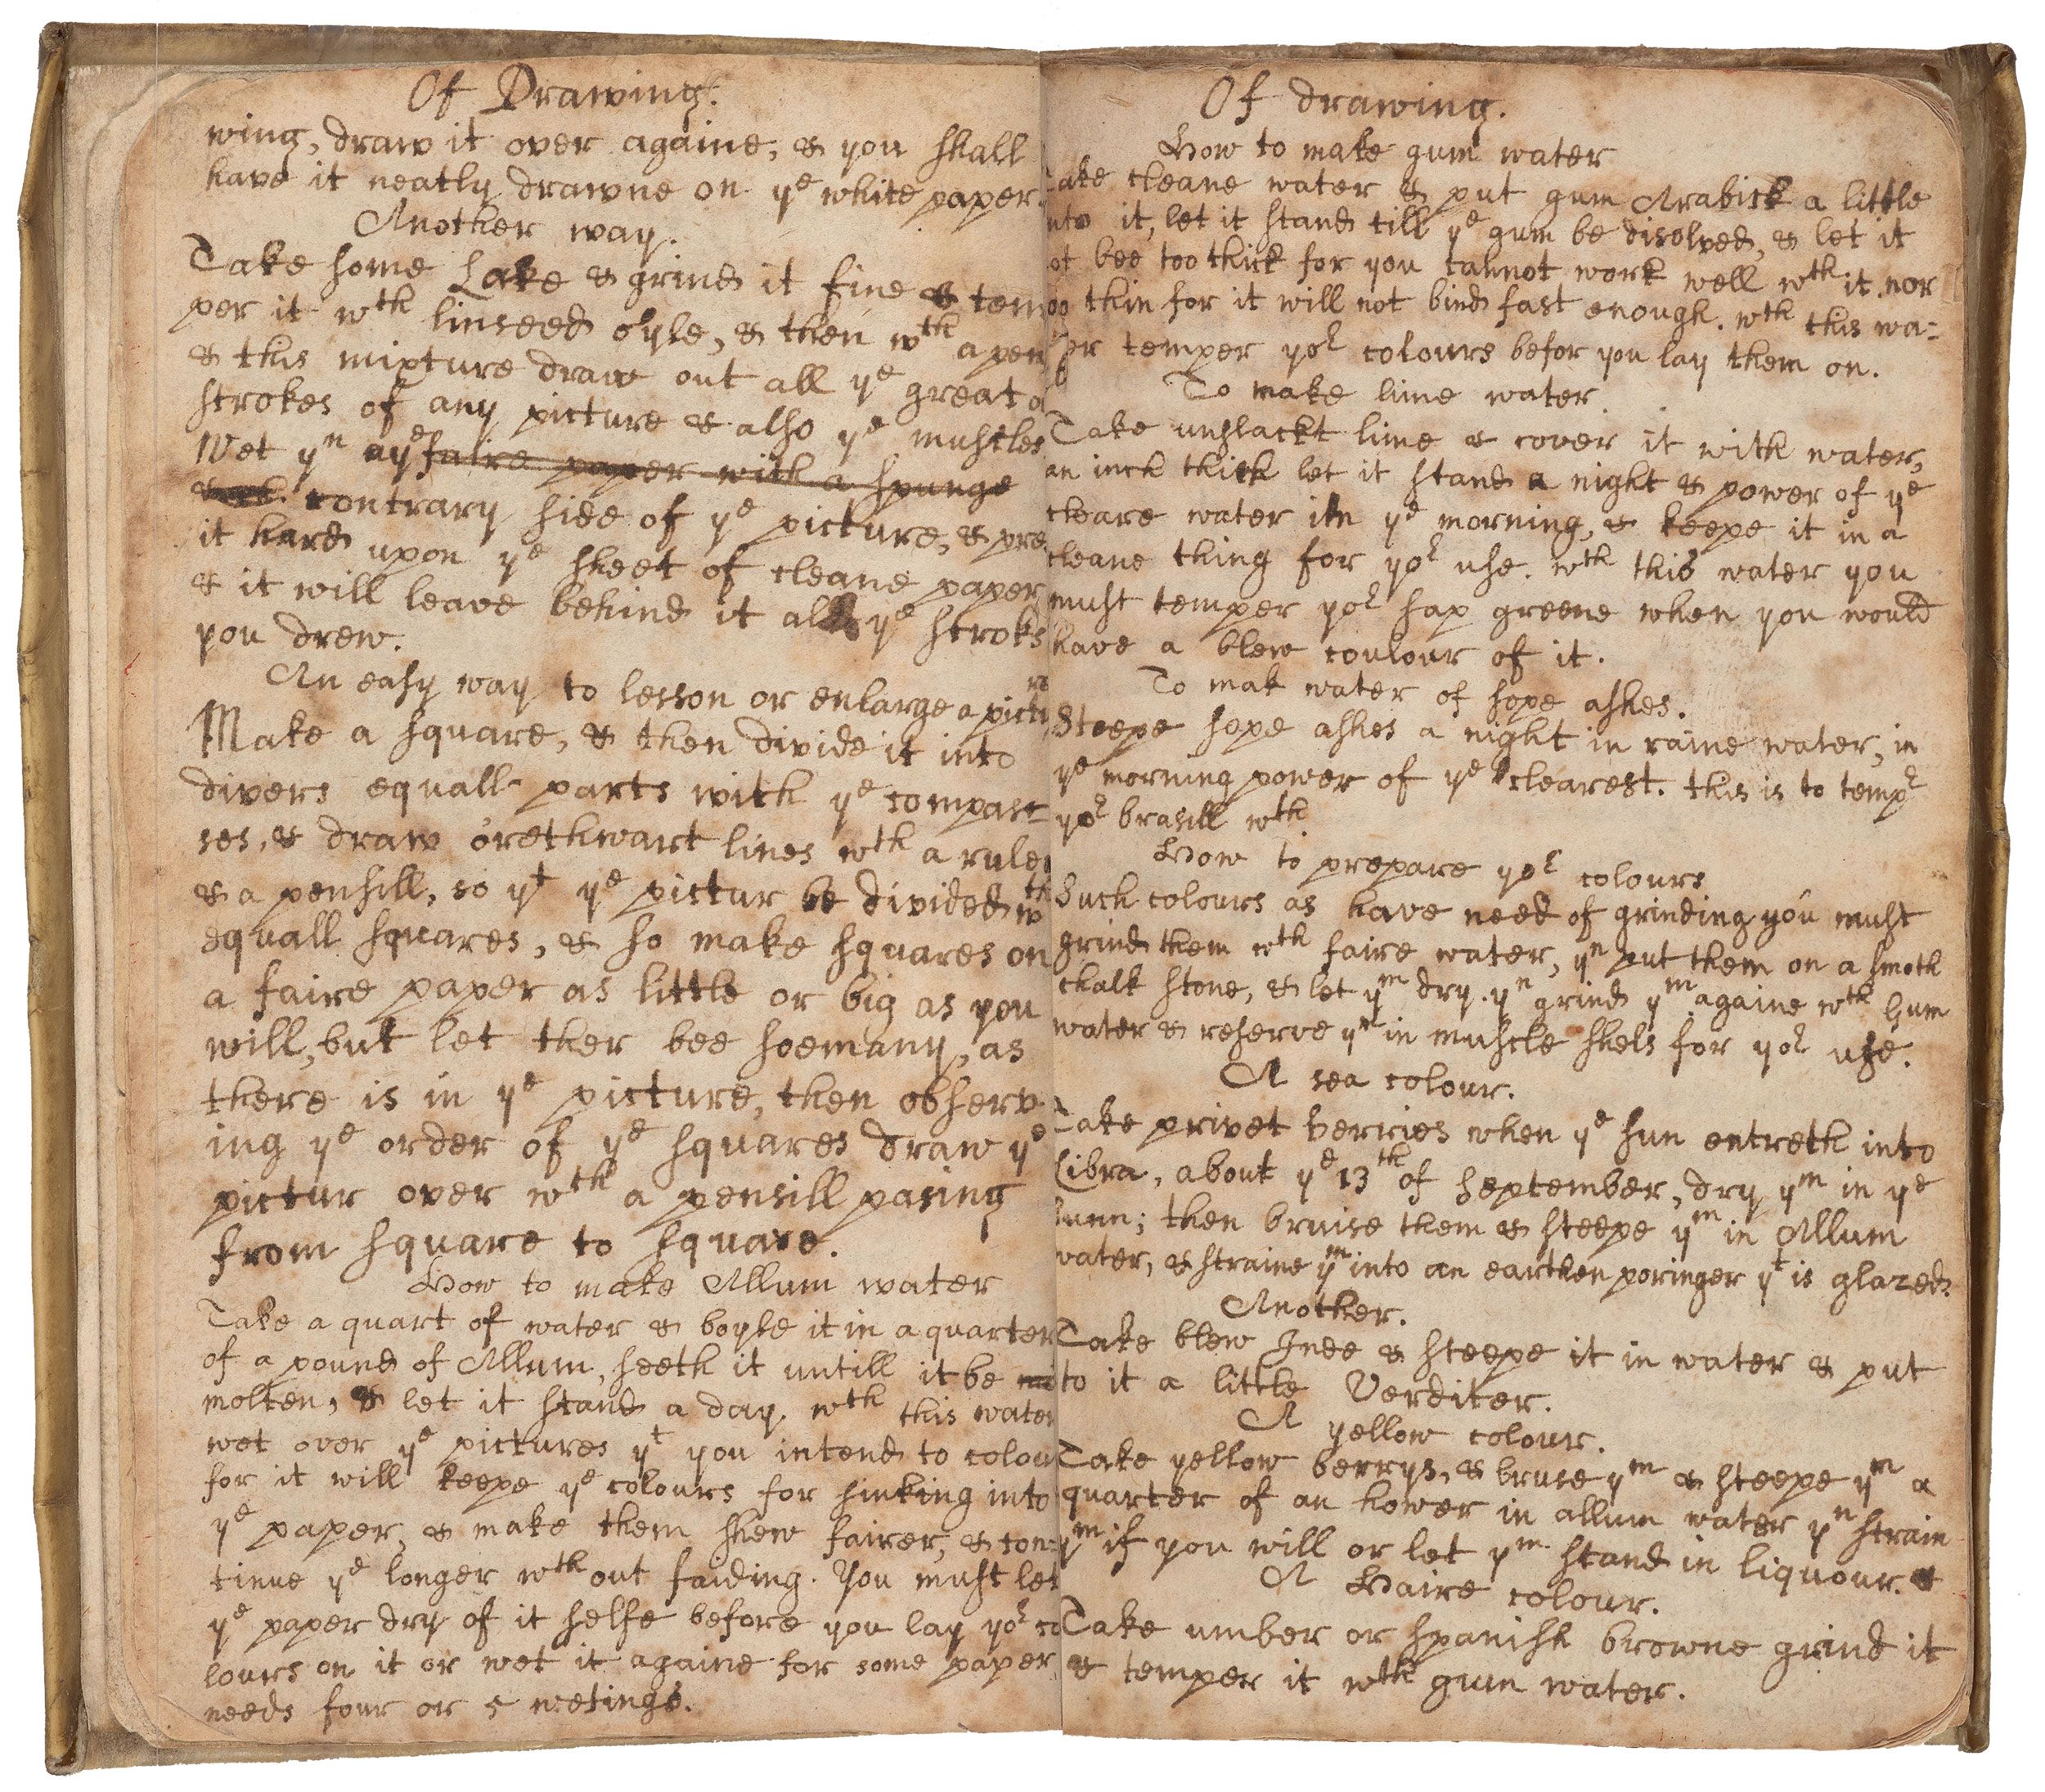 Of Drawing.
wing, draw it over againe, & you shall
have it neatly drawne on ye white paper.
Another way.
Take some Lake & grind it fine & tem
per it wth linseed oyle, & then wth a pen
& this mixture draw out all ye great
strokes of any picture & also ye muscles
Wet yn ye faire paper with a spunge
contrary side of ye picture, & pre
it hard upon ye sheet of cleane paper
& it will leave behind it all ye stroks
you drew.
An easy way to lesson or enlarge a pictu
re
Make a square, & then divide it into
divers equall parts with ye compas=
ses, & draw orethwart lines wth a ruler
& a pensill, so yt ye pictur be divided wth
equall squares, & so make squares on
a faire paper as little or big as you
will, but let ther bee soe many, as
there is in ye picture, then observ
ing ye order of ye squares draw ye
pictur over wth a pensill pasing
from square to square.
How to make Allum water
Take a quart of water & boyle it in a quarter
of a pound of Allum, seeth it untill it be
molten, & let it stand a day. wth this water
wet over ye pictures yt you intend to colou
for it will keepe ye colours for sinking into
ye paper, & make them shew fairer, & con=
tinue ye longer wthout faiding. You must let
ye paper dry of it selfe before you lay yor co
lours on it or wet it againe for some paper
needs four or 5 wetings.
Of drawing.
How to make gum water
Take cleane water & put gum Arabick a little
nto it, let it stand till ye gum be disolved, & let it
ot bee too thick for you cannot work well wth it. nor
oo thin for it will not bind fast enough. wth this wa=
ter temper yor colours befor you lay them on.
To make lime water
Take unslackt lime & cover it with water,
an inch thick let it stand a night & power of ye
cleare water in ye morning, & keepe it in a
cleane thing for yor use. wth this water you
must temper yor sap greene when you would
have a blew coulour of it.
To mak water of sope ashes.
Steepe sope ashes a night in raine water, in
ye morning power of ye clearest. this is to tempr
yor brasill wth
How to prepare yor colours
Such colours as have need of grinding you must
grind them wth faire water, yn put them on a smoth
chalk stone, & let ym dry. yn grind ym againe wth Gum
water & reserve ym in muscle shels for yor use.
A sea colour.
Take privet berries when ye sun entreth into
Libra, about ye 13th of September, dry ym in ye
sunn; then bruise them & steepe ym in Allum
water, & straine ym into an earthen poringer yt is glazed.
Another.
Take blew Inde & steepe it in water & put
to it a little Verditer.
A yellow colour.
Take yellow berrys, & bruse ym & steepe ym a
quarter of an hower in allum water yn strain
ym if you will or let ym stand in liquour.
A Haire colour.
Take umber or spanish browne grind it
& temper it wth gum water.